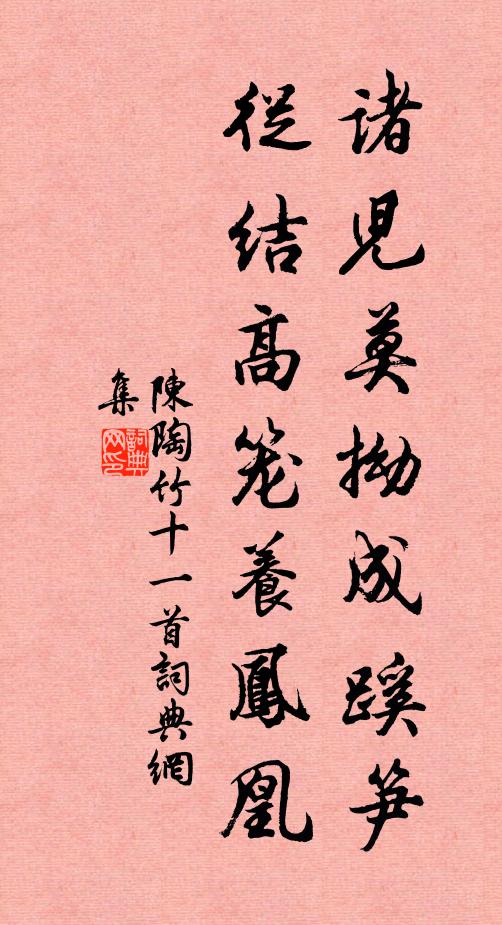 諸児莫拗成蹊笋
從結高笼養鳳凰
陳陶竹十一首詞典網
集
詞典网印